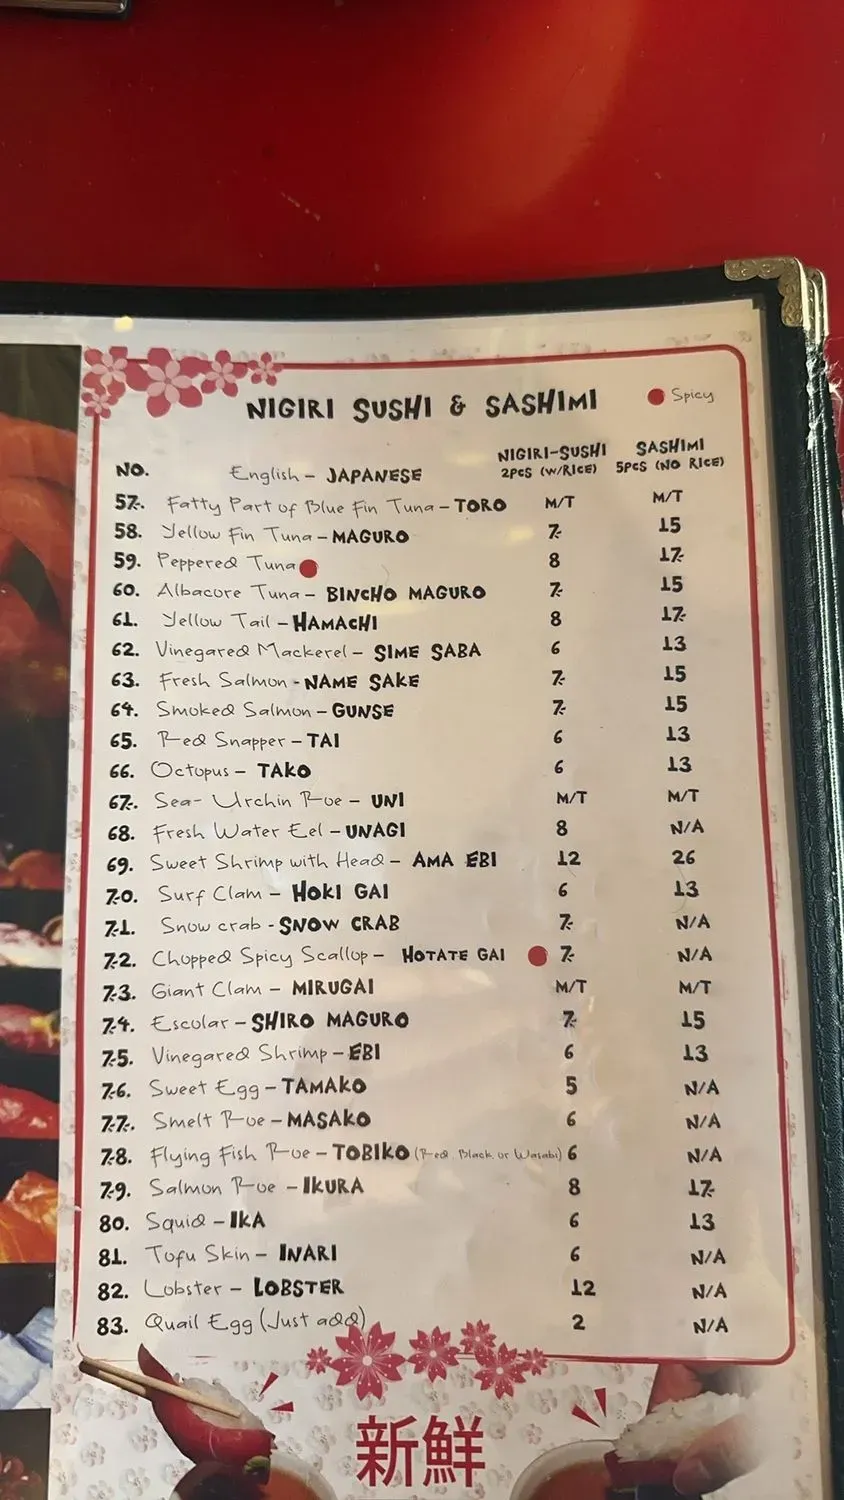 NIGIRI SUSHI & SASHIMI
Spicy
NO. English - JAPANESE NIGIRI-SUSHI 2PCS (W/RICE) SASHIMI 5PCS (NO RICE)
57. Fatty Part of Blue Fin Tuna - TORO M/T M/T
58. Yellow Fin Tuna - MAGURO 7 15
59. Peppered Tuna 8 17
60. Albacore Tuna - BINCHO MAGURO 7 15
61. Yellow Tail - HAMACHI 8 17
62. Vinegared Mackerel - SIME SABA 6 13
63. Fresh Salmon - NAME SAKE 7 15
64. Smoked Salmon - GUNSE 7 15
65. Red Snapper - TAI 6 13
66. Octopus - TAKO 6 13
67. Sea-Urchin Roe - UNI M/T M/T
68. Fresh Water Eel - UNAGI 8 N/A
69. Sweet Shrimp with Head - AMA EBI 12 26
70. Surf Clam - HOKI GAI 6 13
71. Snow crab - SNOW CRAB 7 N/A
72. Chopped Spicy Scallop - HOTATE GAI 7 N/A
73. Giant Clam - MIRUGAI M/T M/T
74. Escolar - SHIRO MAGURO 7 15
75. Vinegared Shrimp - EBI 6 13
76. Sweet Egg - TAMAKO 5 N/A
77. Smelt Roe - MASAKO 6 N/A
78. Flying Fish Roe - TOBIKO (Red, Black, or Wasabi) 6 N/A
79. Salmon Roe - IKURA 8 17
80. Squid - IKA 6 13
81. Tofu Skin - INARI 6 N/A
82. Lobster - LOBSTER 12 N/A
83. Quail Egg (Just add) 2 N/A
新鮮